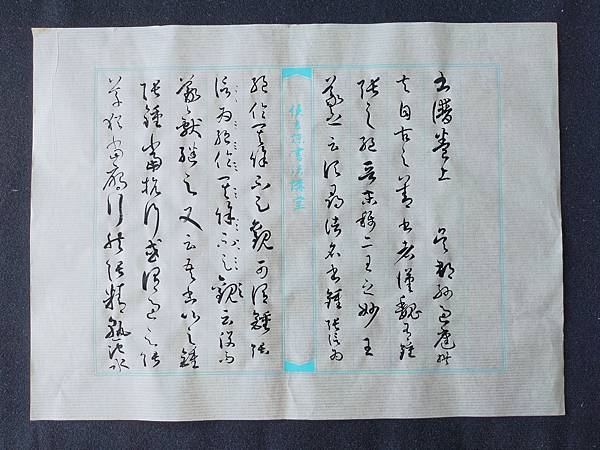 書譜卷上 吳郡孫過庭撰
夫自古之善書者漢魏有鍾
張之絕晉末稱二王之妙王
羲之云頃尋諸名書鍾張信為
侯吉諒書法講堂
絕倫其餘不足觀可謂鍾張
信為絕倫其餘不足觀云沒而
羲獻繼之又云吾書比之鍾
張鍾當抗行或謂過之張
草猶當鴈行然張精熟池水